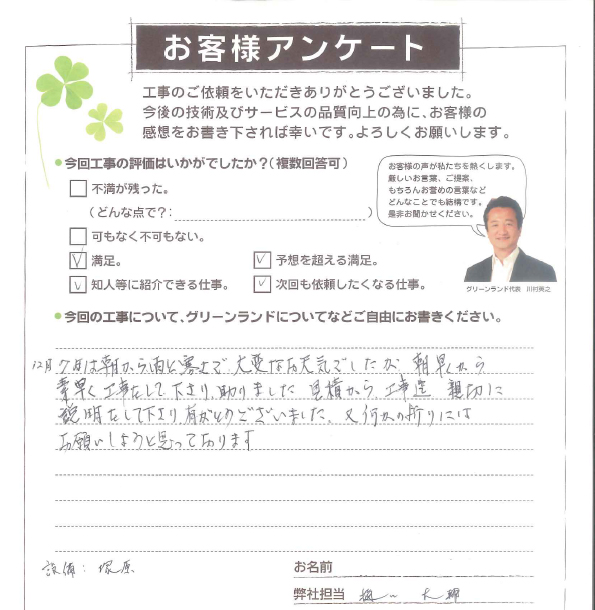 お客様アンケート
工事のご依頼をいただきありがとうございました。
今後の技術及びサービスの品質向上の為に、お客様の
感想をお書き下されば幸いです。よろしくお願いします。
●今回工事の評価はいかがでしたか？（複数回答可）
不満が残った。
（どんな点で？：　）
可もなく不可もない。
満足。
予想を超える満足。
知人等に紹介できる仕事。
次回も依頼したくなる仕事。
お客様の声が私たちを熱くします。
厳しいお言葉、ご提案、
もちろんお誉めの言葉など
どんなことでも結構です。
是非お聞かせください。
グリーンランド代表　川村英之
●今回の工事について、グリーンランドについてなどご自由にお書きください。
12月7日は朝から雨と寒さで大変なお天気でしたが 朝早くから
素早く工事をして下さり、助りました 見積から工事迄 親切に
説明をして下さり、有がとうございました。又何かの折りには
お願いしようと思っております
設備：塚原
お名前
弊社担当